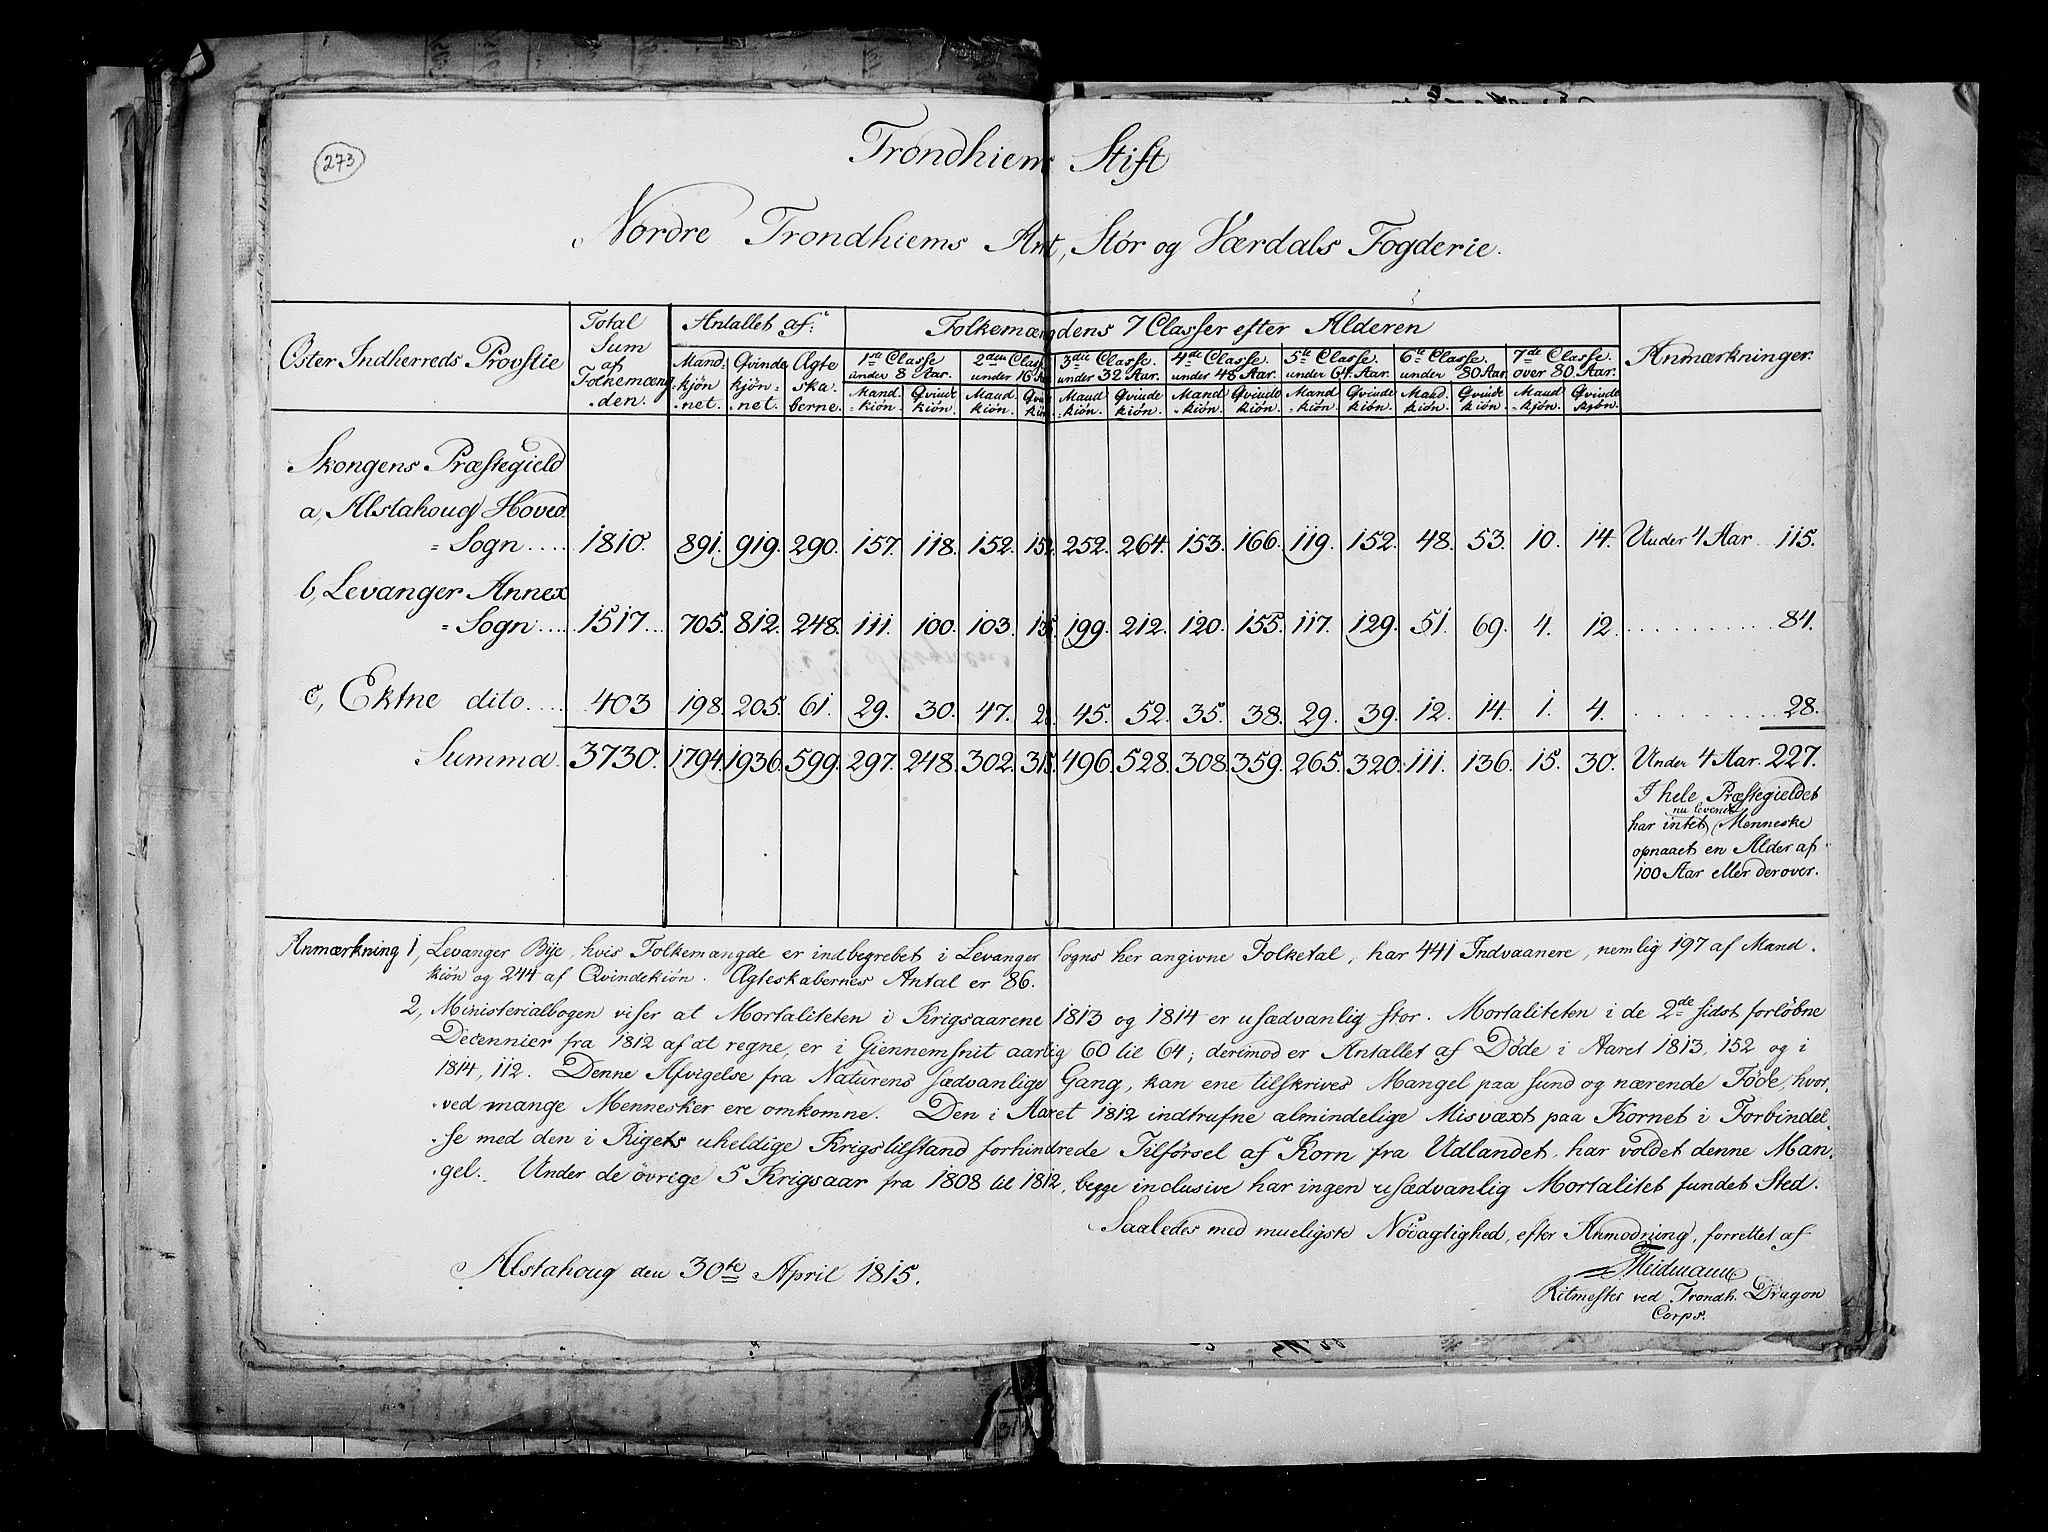 273
Trondhiems Stift
Nordre Trondhiems Amt, Stör og Værdals Fogderie.
Öster Indherreds Provstie | Total Sum af Folkemæng-den. | Antallet af: | Folkemængdens 7 Classer efter Alderen | Anmærkninger.
Mand-kjön-net. | Qvinde kjön-net. | Ægte ska-berne. | 1ste Classe under 8 Aar. | 2den Class under 16 Aar | 3die Classe. under 32 Aar. | 4de Classe. under 48 Aar. | 5te Classe. under 64 Aar. | 6te Classe. under 80 Aar. | 7de Classe. over 80 Aar.
Mand-kiön. | Qvinde kiön. | Mand kiön. | Qvi kiön | Mand-kiön. | Qvinde kiön. | Mand-kiön. | Qvinde kiön. | Mand-kiön. | Qvinde kiön. | Mand. kiön. | Qvinde kiön. | Mand-kjön. | Qvinde kjön.
Skongens Præstegield
a, Alstahoug Hoved
=Sogn.... 1810. 891. 919. 290. 157. 118. 152. 152 252. 264. 153. 166. 119. 152. 48. 53. 10. 14. Under 4 Aar 115.
b, Levanger Annex
=Sogn.... 1517... 705. 812. 248. 111. 100. 103. 135. 199. 212. 120. 155. 117. 129. 51. 69. 4. 12. ........... 84.
c, Ektne dito.... 403 198. 205. 61. 29. 30. 47. 28 45. 52. 35. 38. 29. 39. 12. 14. 1. 4. ........... 28.
Summa. 3730. 1794. 1936. 599. 297. 248. 302. 315. 496. 528. 308. 359. 265. 320. 111. 136. 15. 30. Under 4 Aar. 227.
I hele Præstegieldet
nu levende
har intet Menneske
opnaaet en Alder af
100 Aar eller derover.
Anmærkning 1, Levanger Bÿe, hvis Folkemængde er indbegrebet i Levanger Sogns her angivne Folketal, har 441 Indvaanere, nemlig 197 af Mand-
kiön og 244 af Qvindekiön. Ægteskabernes Antal er 86.
2, Ministerialbogen viser at Mortaliteten i Krigsaarene 1813 og 1814 er usædvanlig stor. Mortaliteten i de 2de sidst forløbne
Decennier fra 1812 af at regne, er i Giennemsnit aarlig 60 til 64; derimod er Antallet af Døde i Aaret 1813, 152 og i
1814, 112. Denne Afvigelse fra Naturens sædvanlige Gang, kan ene tilskrives Mangel paa sund og nærende Føde, hvor-
ved mange Mennesker ere omkomne. Den i Aaret 1812 indtrufne almindelige Misvæxt paa Kornet i Forbindel-
se med den i Rigets uheldige Krigstilstand forhindrede Tilførsel af Korn fra Udlandet, har voldet denne Man-
gel. Under de øvrige 5 Krigsaar fra 1808 til 1812, begge inclusive har ingen usædvanlig Mortalitet fundet Sted.
Saaledes med mueligste Nöiagtighed, efter Anmodning, forrettet af
Alstahoug den 30te April 1815.
Ritmester ved Trondh. Dragon
Corps.